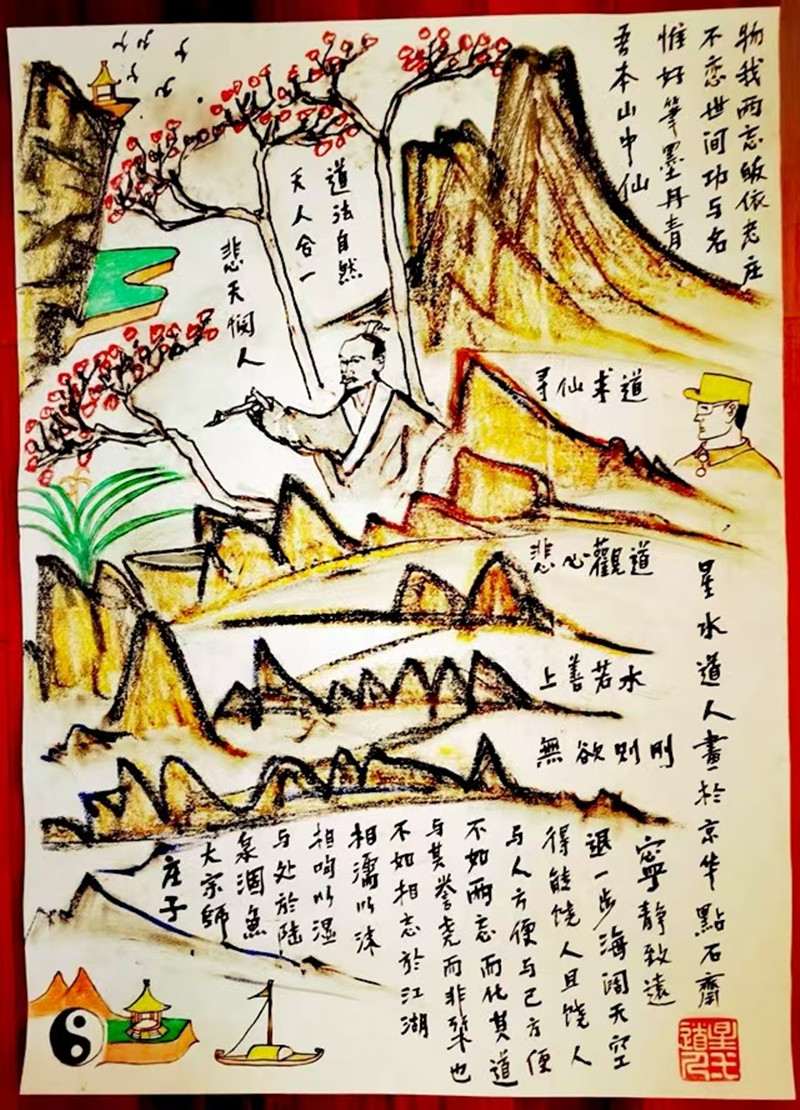 物我两忘皈依老庄
不恋世间功与名
惟好筆墨丹青
吾本山中仙
道法自然
天人合一
悲天悯人
寻仙求道
悲心觀道
上善若水
無欲则刚
星水道人畫於京华點石齋
寧静致遠
退一步海阔天空
得能饶人且饶人
与人方便与己方便
不如两忘而化其道
与其誉尧而非桀也
不如相忘於江湖
相濡以沫
相呴以湿
与处於陆
泉涸魚
大宗師
庄子